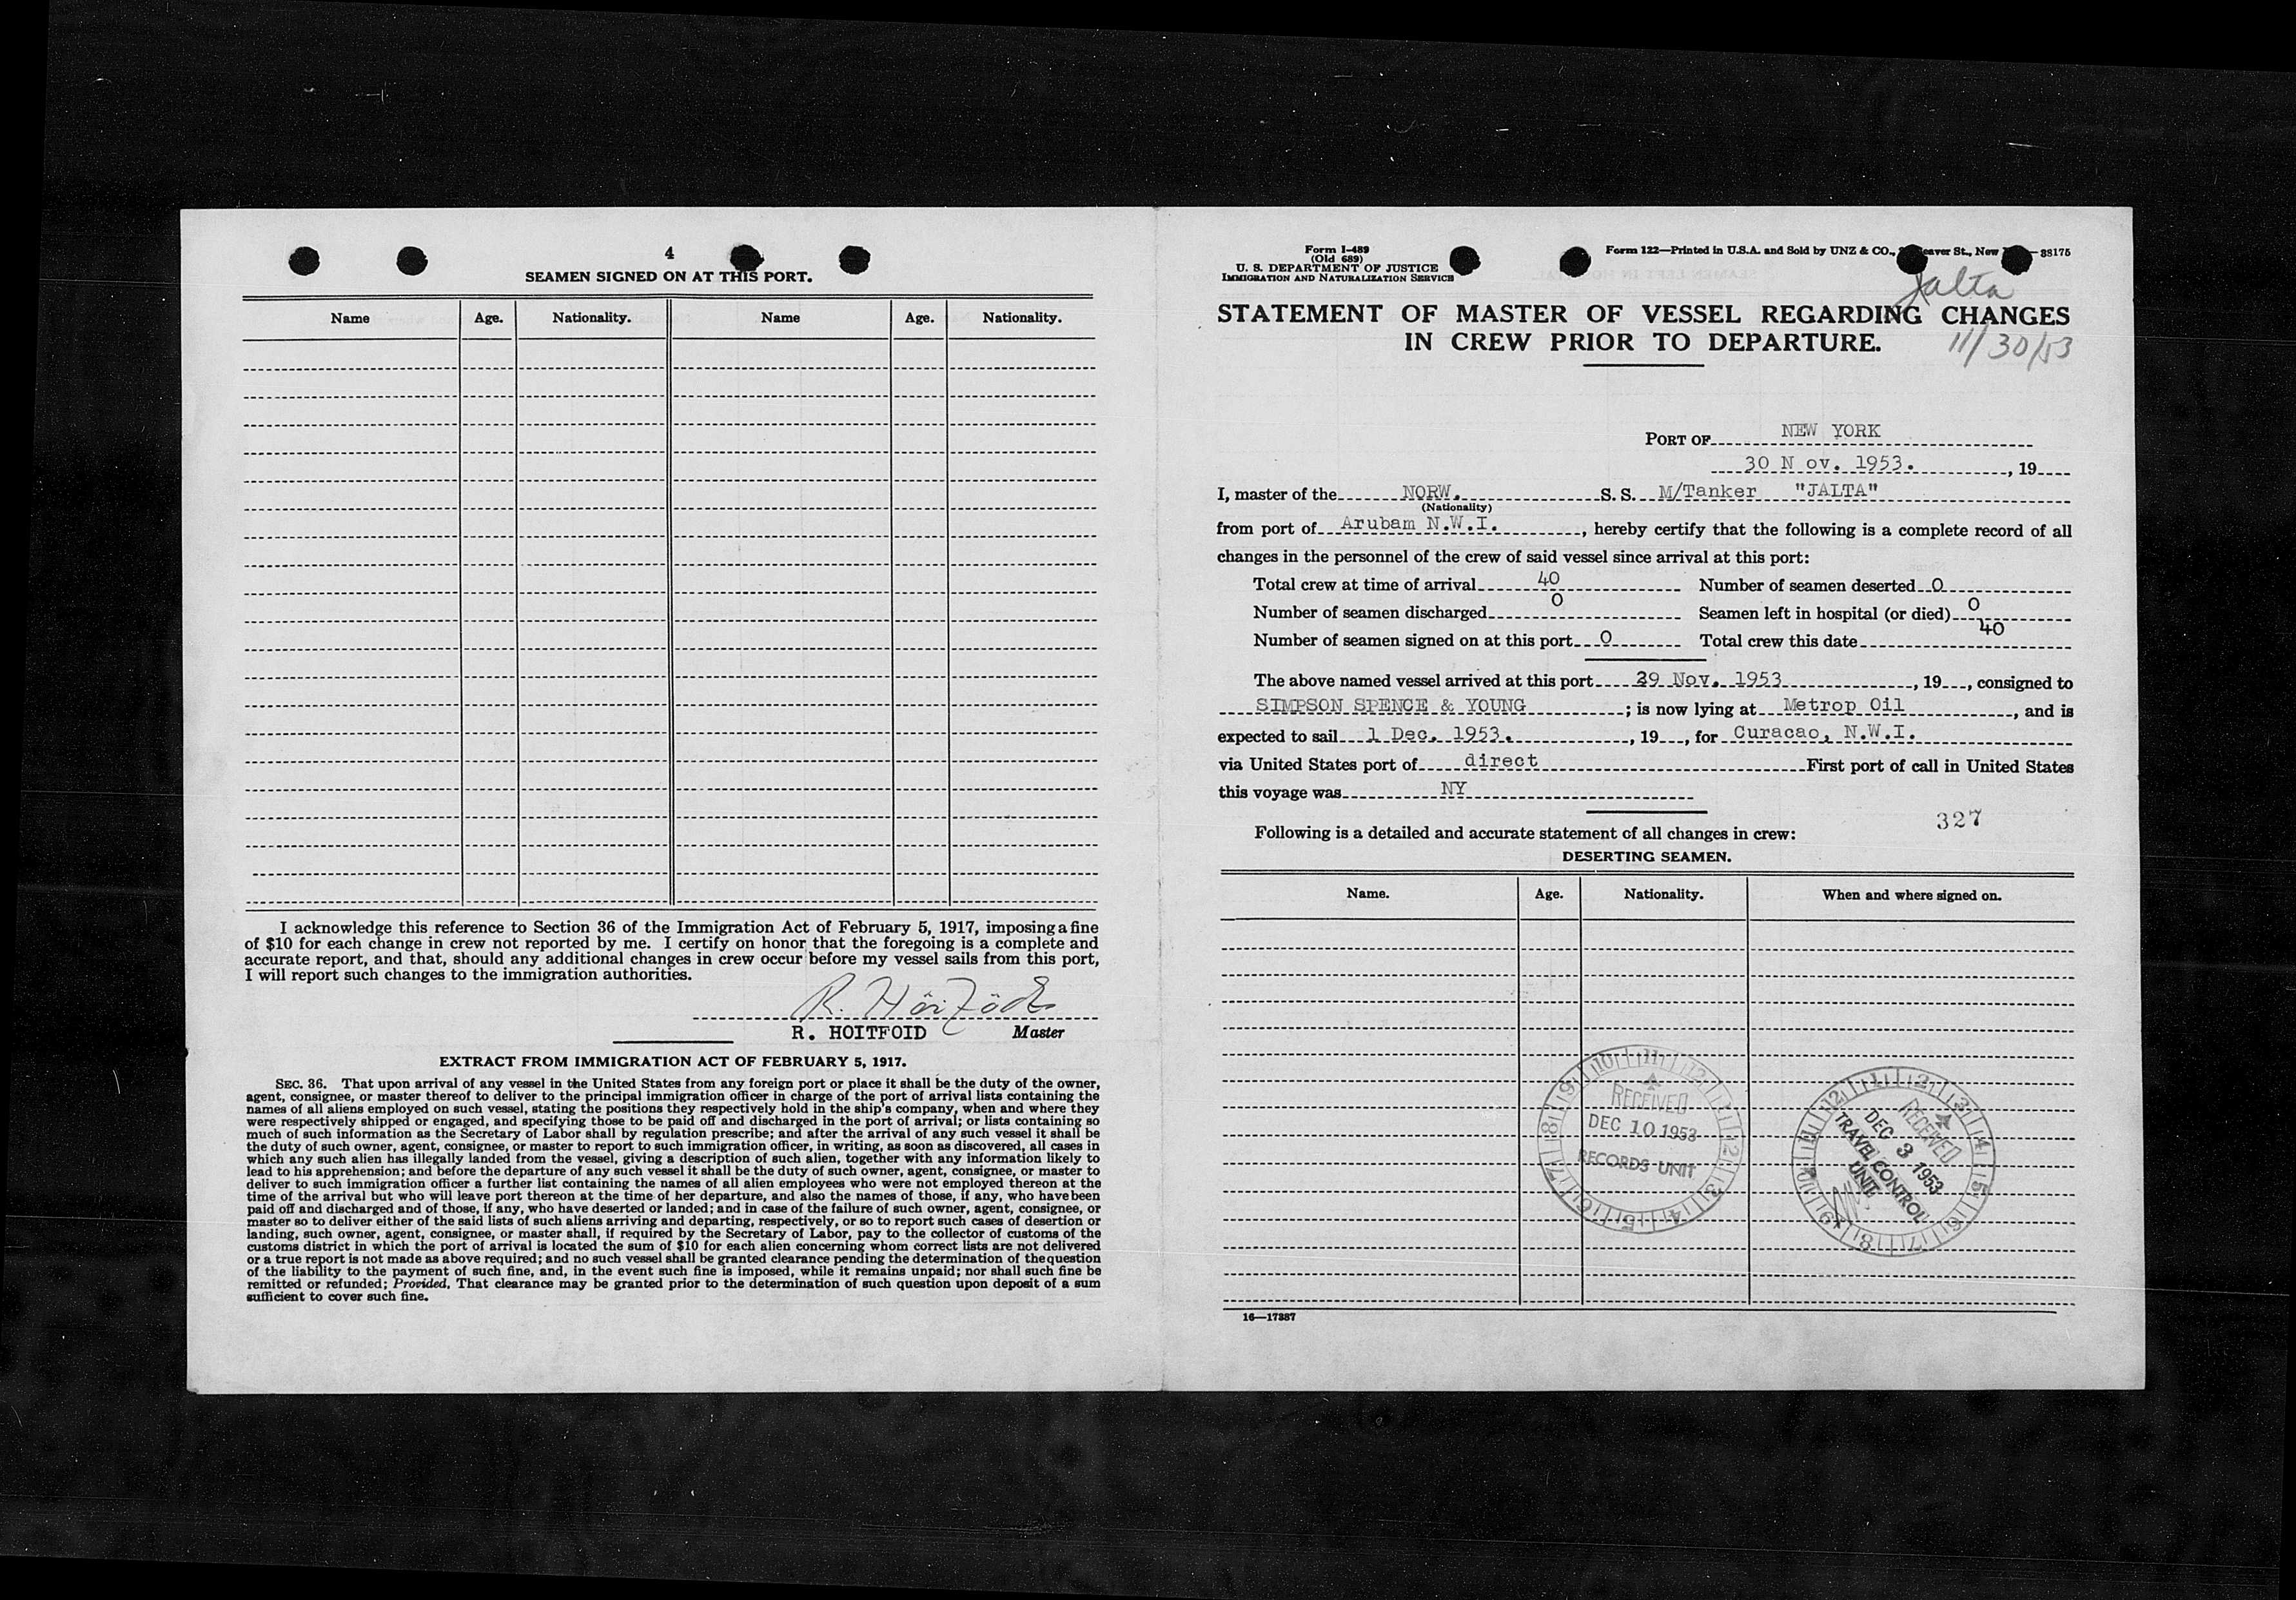 4
SEAMEN SIGNED ON AT THIS PORT.
Name Age. Nationality. Name Age. Nationality.
I acknowledge this reference to Section 36 of the Immigration Act of February 5, 1917, imposing a fine
of $10 for each change in crew not reported by me. I certify on honor that the foregoing is a complete and
accurate report, and that, should any additional changes in crew occur before my vessel sails from this port,
I will report such changes to the immigration authorities.
R.
R. HOITFOID Master
EXTRACT FROM IMMIGRATION ACT OF FEBRUARY 5, 1917.
SEC. 36. That upon arrival of any vessel in the United States from any foreign port or place it shall be the duty of the owner,
agent, consignee, or master thereof to deliver to the principal immigration officer in charge of the port of arrival lists containing the
names of all aliens employed on such vessel, stating the positions they respectively hold in the ship's company, when and where they
were respectively shipped or engaged, and specifying those to be paid off and discharged in the port of arrival; or lists containing so
much of such information as the Secretary of Labor shall by regulation prescribe; and after the arrival of any such vessel it shall be
the duty of such owner, agent, consignee, or master to report to such immigration officer, in writing, as soon as discovered, all cases in
which any such alien has illegally landed from the vessel, giving a description of such alien, together with any information likely to
lead to his apprehension; and before the departure of any such vessel it shall be the duty of such owner, agent, consignee, or master to
deliver to such immigration officer a further list containing the names of all alien employees who were not employed thereon at the
time of the arrival but who will leave port thereon at the time of her departure, and also the names of those, if any, who have been
paid off and discharged and of those, if any, who have deserted or landed; and in case of the failure of such owner, agent, consignee, or
master so to deliver either of the said lists of such aliens arriving and departing, respectively, or so to report such cases of desertion or
landing, such owner, agent, consignee, or master shall, if required by the Secretary of Labor, pay to the collector of customs of the
customs district in which the port of arrival is located the sum of $10 for each alien concerning whom correct lists are not delivered
or a true report is not made as above required; and no such vessel shall be granted clearance pending the determination of the question
of the liability to the payment of such fine, and, in the event such fine is imposed, while it remains unpaid; nor shall such fine be
remitted or refunded; Provided, That clearance may be granted prior to the determination of such question upon deposit of a sum
sufficient to cover such fine.
Form I-489
(Old 689)
U. S. DEPARTMENT OF JUSTICE
IMMIGRATION AND NATURALIZATION SERVICE
Form 122—Printed in U.S.A. and Sold by UNZ & CO., eaver St., New —38175
Jalta
STATEMENT OF MASTER OF VESSEL REGARDING CHANGES
IN CREW PRIOR TO DEPARTURE.
11/30/53
PORT OF NEW YORK
30 N ov. 1953. , 19
I, master of the NORW. S. S. M/Tanker "JALTA"
(Nationality)
from port of Arubam N.W.I. , hereby certify that the following is a complete record of all
changes in the personnel of the crew of said vessel since arrival at this port:
Total crew at time of arrival 40 Number of seamen deserted 0
Number of seamen discharged 0 Seamen left in hospital (or died) 0
Number of seamen signed on at this port 0 Total crew this date 40
The above named vessel arrived at this port 29 Nov. 1953 , 19 , consigned to
SIMPSON SPENCE & YOUNG ; is now lying at Metrop Oil , and is
expected to sail 1 Dec. 1953. , 19 , for Curacao, N.W.I.
via United States port of direct First port of call in United States
this voyage was NY
327
Following is a detailed and accurate statement of all changes in crew:
DESERTING SEAMEN.
Name. Age. Nationality. When and where signed on.
10 11 12 1 2 3 4 5 6 7 8 9
RECEIVED
DEC 10 1953
RECORDS UNIT
12 1 2 3 4 5 6 7 8 9 10 11
RECEIVED
DEC 3 1953
TRAVEL CONTROL
UNIT
16—17387